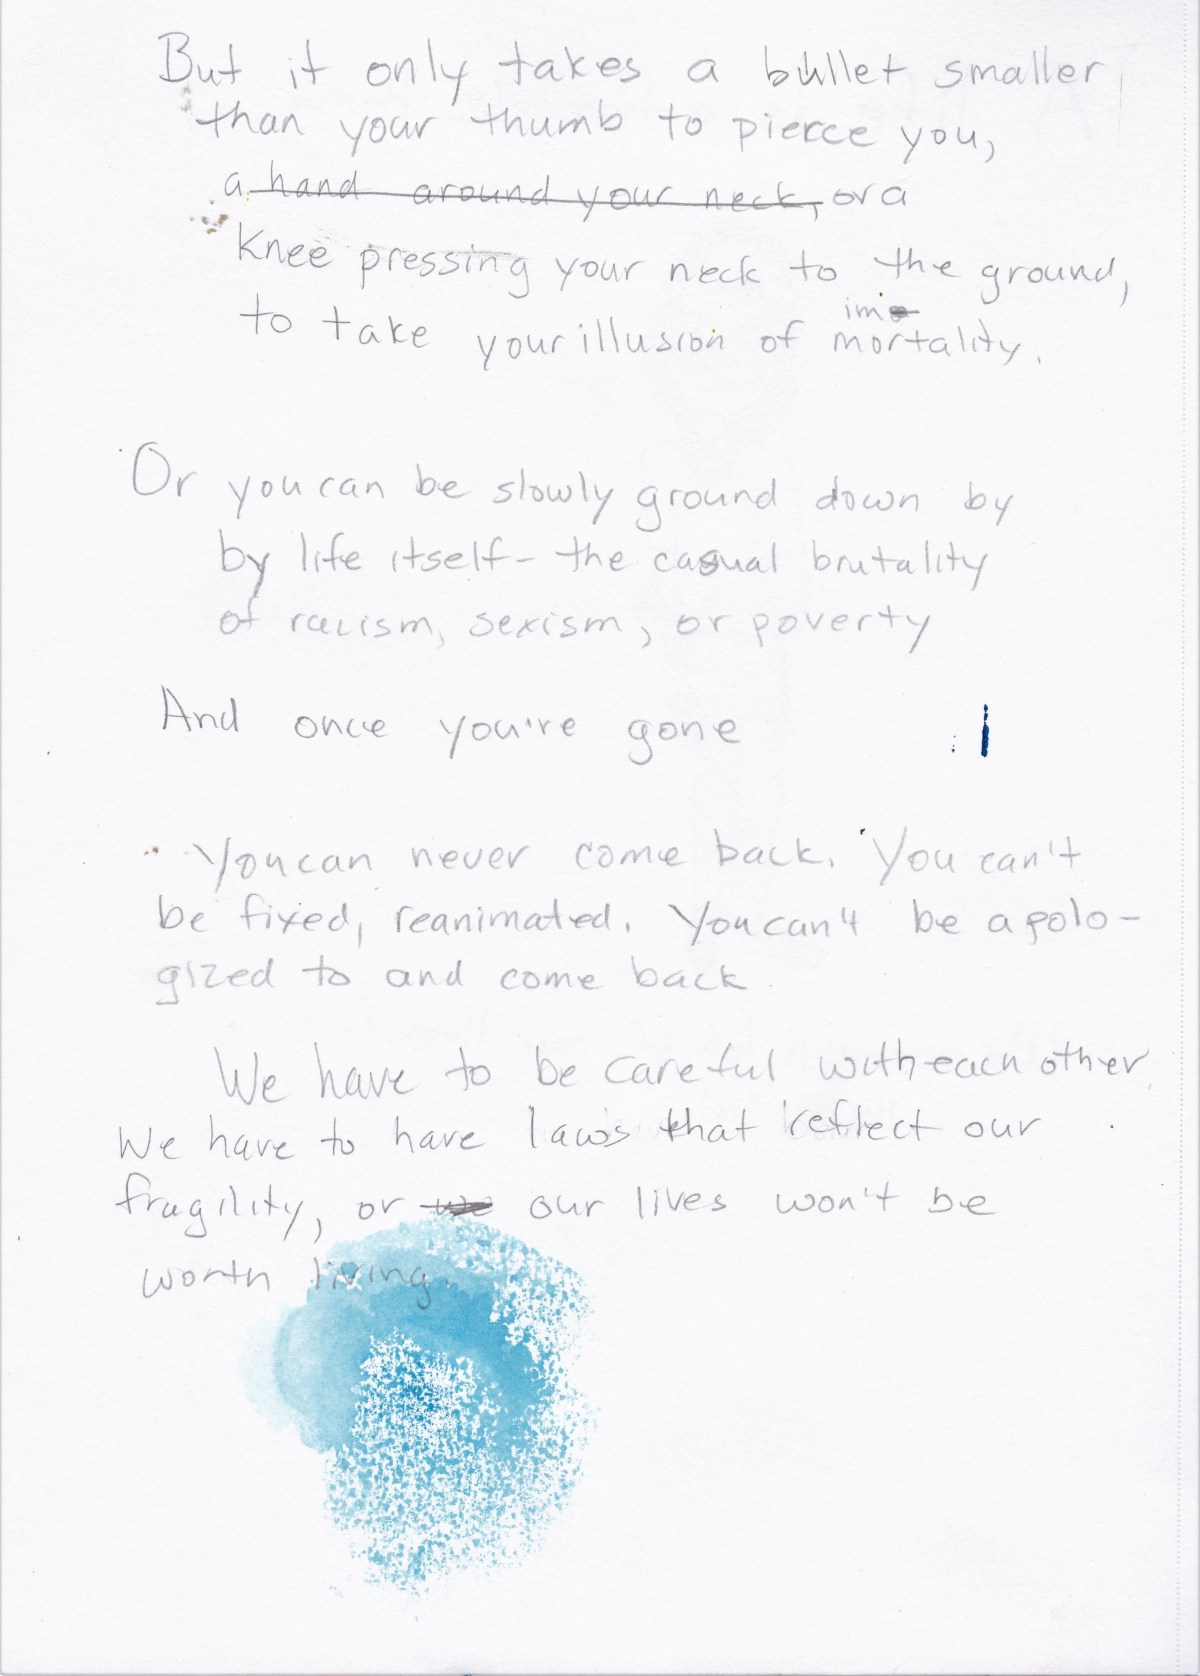 But it only takes a bullet smaller
than your thumb to pierce you,
a hand around your neck, or a
Knee pressing your neck to the ground,
im
to take your illusion of mortality.
Or you can be slowly ground down by
by life itself - the casual brutality
of racism, sexism, or poverty
And once you're gone
You can never come back. You can't
be fixed, reanimated. You can't be apolo-
gized to and come back.
We have to be careful with each other
We have to have laws that reflect our
fragility, or we our lives won't be
worth living.